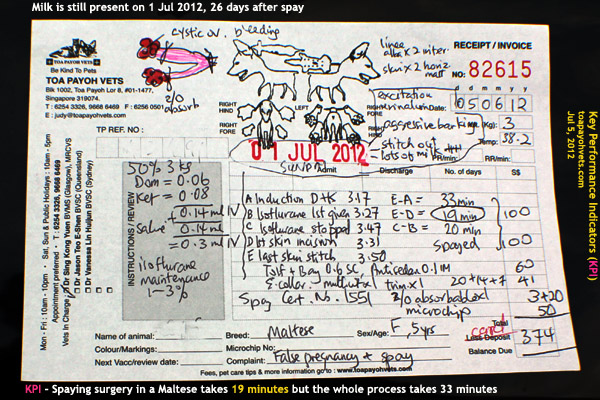 Milk is still present on 1 Jul 2012, 26 days after spay
cystic ov. bleeding
2/0 absorb
Be Kind To Pets
TOA PAYOH VETS
Blk 1002, Toa Payoh Lor 8, #01-1477,
Singapore 319074.
T : 6254 3326, 9668 6469 F : 6256 0501
E : judy@toapayohvets.com
TP REF. NO :
linea alba x 2 inter.
skin x 2 horiz matt
RECEIPT / INVOICE
NO: 82615
d d m m y y
Date: 050612
excitation
urination
RIGHT HIND
LEFT
RIGHT FORE
aggressive barking
Kg: 3
Temp: 38.2
stitch out
lots of milk +++
01 JUL 2012
SUN
Admit
Discharge
No. of days
S$
RR/min:
Mon - Fri : 10am - 9pm • Sat, Sun & Public Holidays : 10am - 5pm
Appointment preferred • T : 6254 3326, 9668 6469
Vets In Charge : Dr Sing Kong Yuen BVMS (Glasgow), MRCVS
Dr Jason Teo E-Shen BVSC (Queensland)
Dr Vanessa Lin Huijun BVSC (Sydney)
INSTRUCTIONS / REVIEW
50% 3 kg
Dom = 0.06
Ket = 0.08
0.14 ml IV
Saline 0.14 ml
= 0.3 ml IV
isoflurane
maintenance
1-3%
A Induction D+K 3.17 E-A= 33 min
B Isoflurane 1st given 3.27 E-D= 19 min 100
C Isoflurane stopped 3.47 C-B= 20 min
D 1st skin incision 3.31 Spayed 100
E last skin stitch 3.50
Tolf + Bay 0.6 SC, Antisedan 0.1 IM 60
E-collar, multivit x 1 trim x 1 20+14+7 41
Spay Cert. No. 1551 2/0 absorbable x 1 3+20
microchip 50
Total
Less Deposit
Balance Due
374
Name of animal:
Breed: Maltese
Sex/Age: F, 5 yrs
Colour/Markings:
Microchip No:
Next Vacc/review date:
Complaint: False pregnancy + spay
For case studies, go to : www.toapayohvets.com
Key Performance Indicators (KPI)
toapayohvets.com
Jul 5, 2012
KPI - Spaying surgery in a Maltese takes 19 minutes but the whole process takes 33 minutes